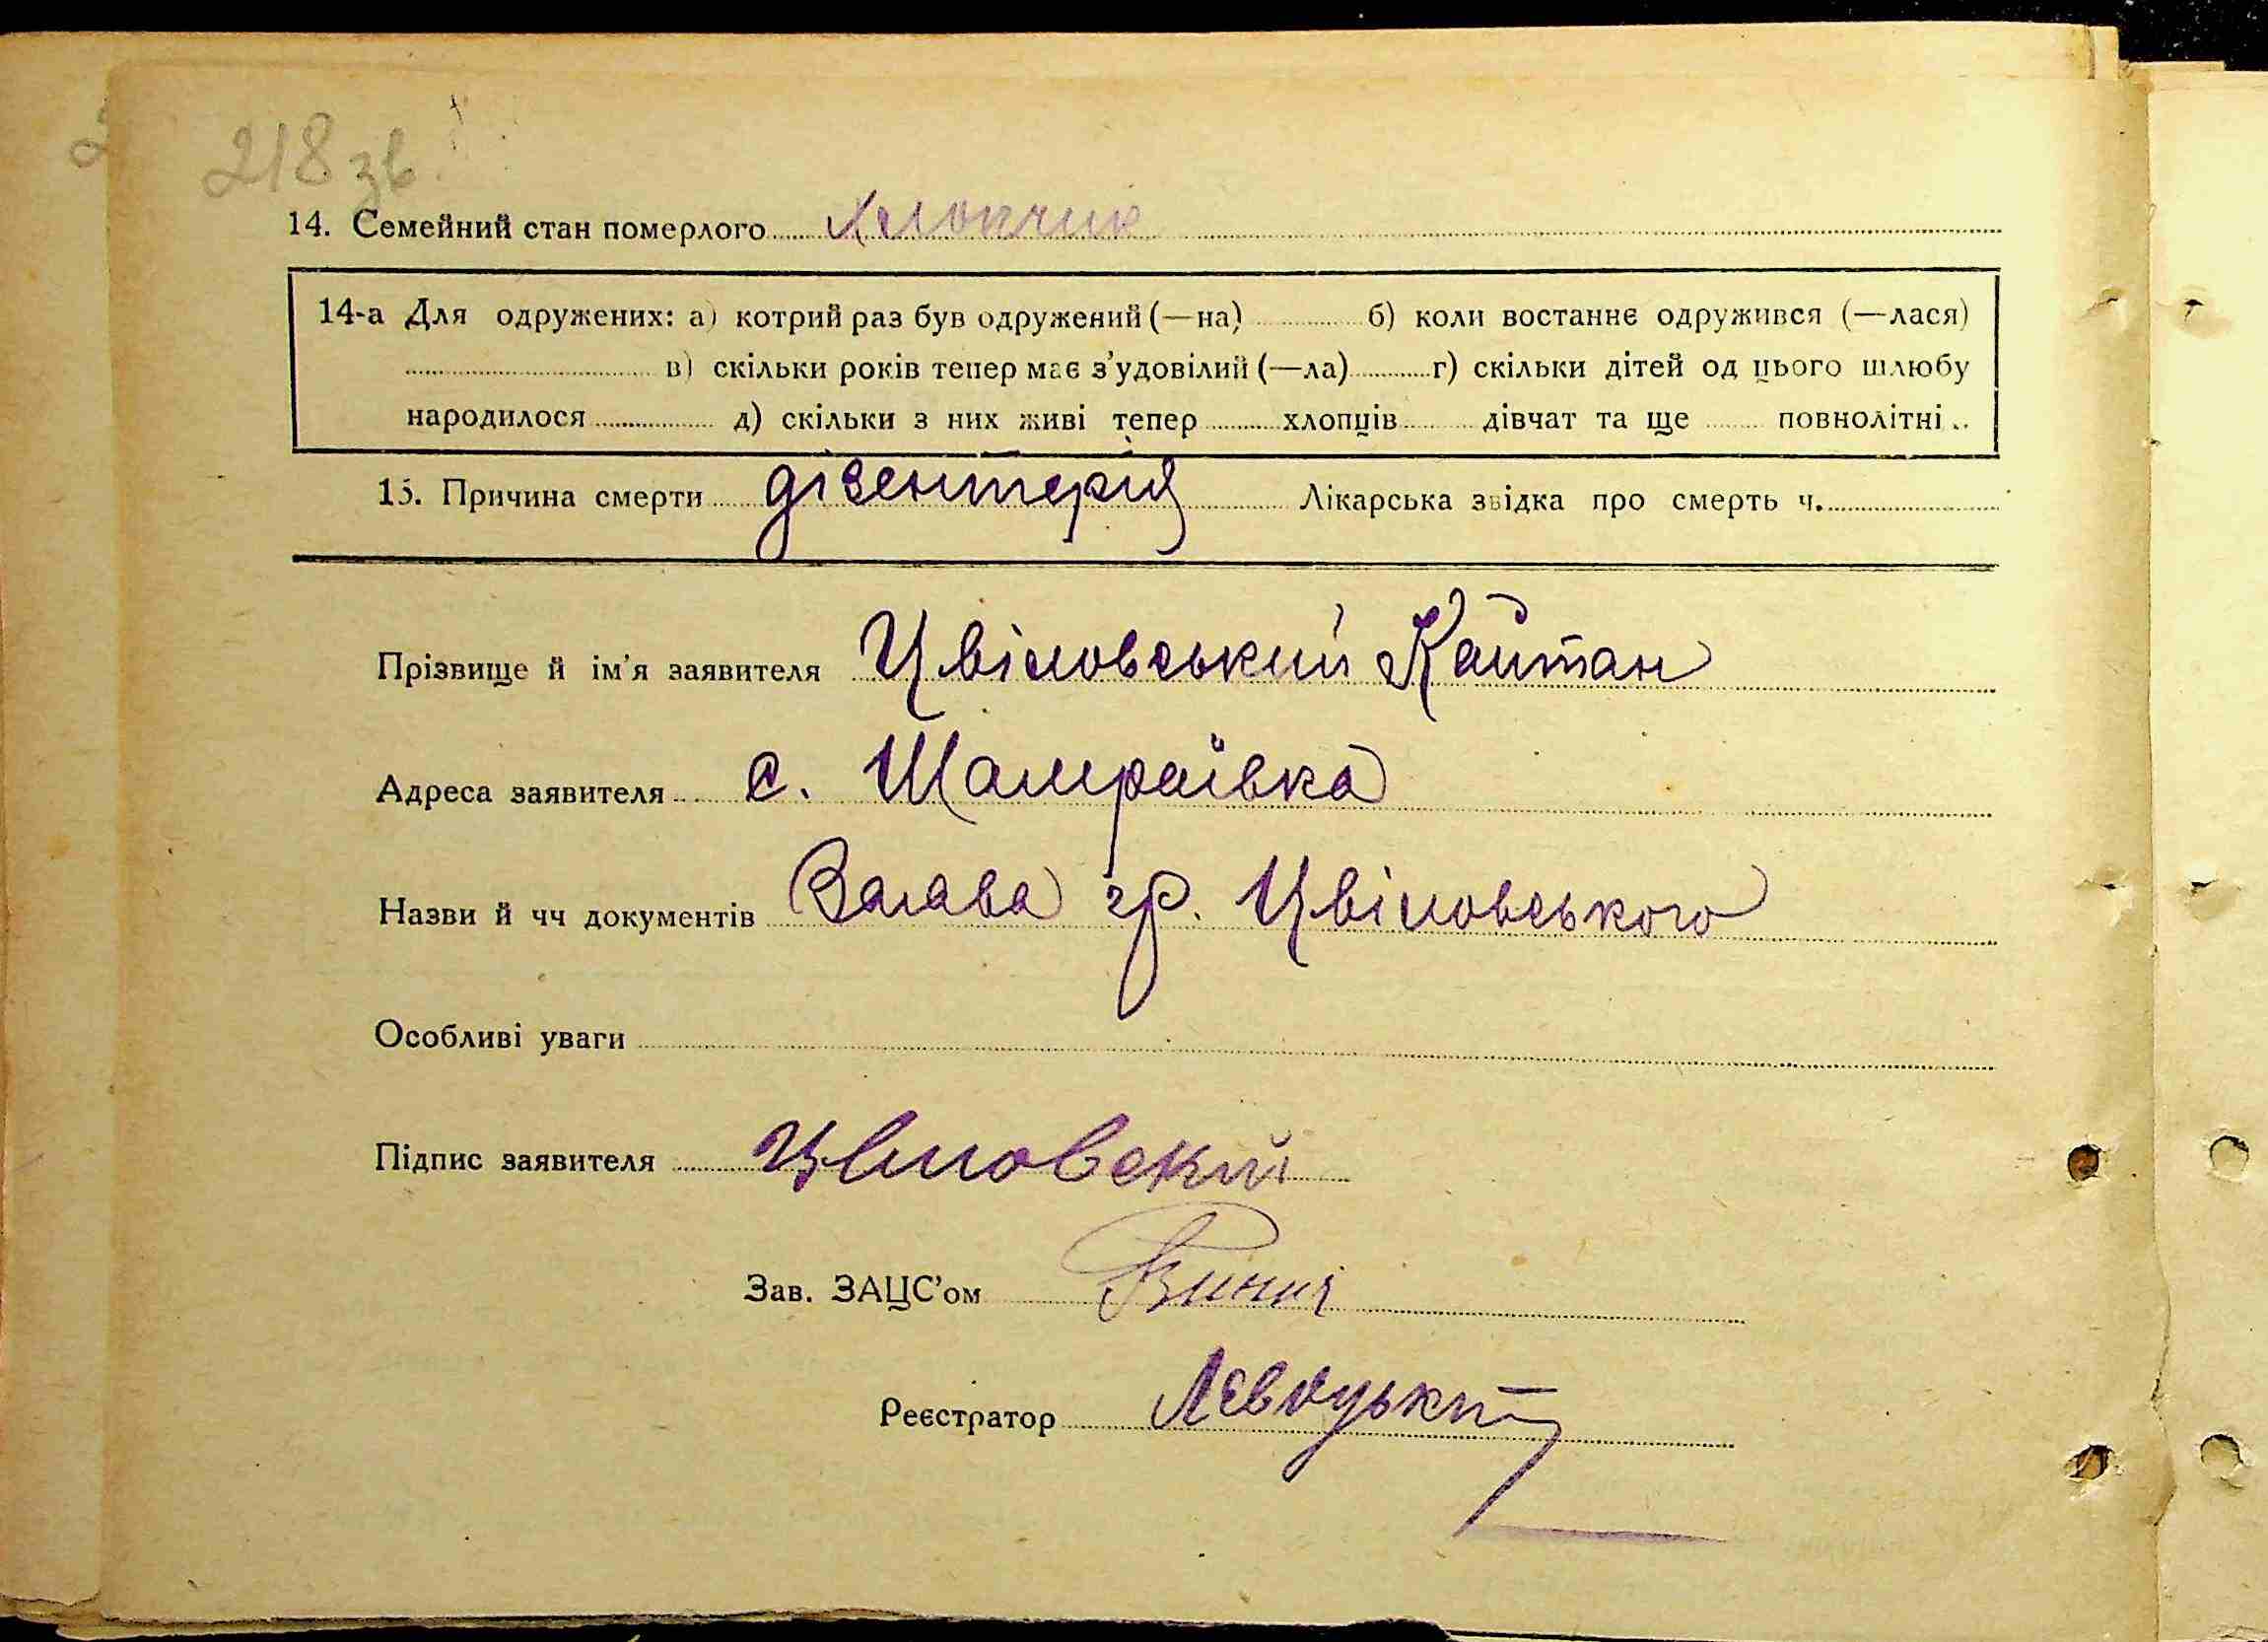 218 зв
14. Семейний стан померлого хлопчик
14-а Для одружених: а) котрий раз був одружений (—на) б) коли востаннє одружився (—лася)
в) скільки років тепер має з'удовілий (—ла) г) скільки дітей од цього шлюбу
народилося д) скільки з них живі тепер хлопців дівчат та ще повнолітні
15. Причина смерти дізентерия Лікарська звідка про смерть ч.
Прізвище й ім'я заявителя Цвіловський Кайтан
Адреса заявителя с. Шамраївка
Назви й чч документів Заява гр. Цвіловського
Особливі уваги
Підпис заявителя Цвиловский
Зав. ЗАЦС'ом
Реєстратор